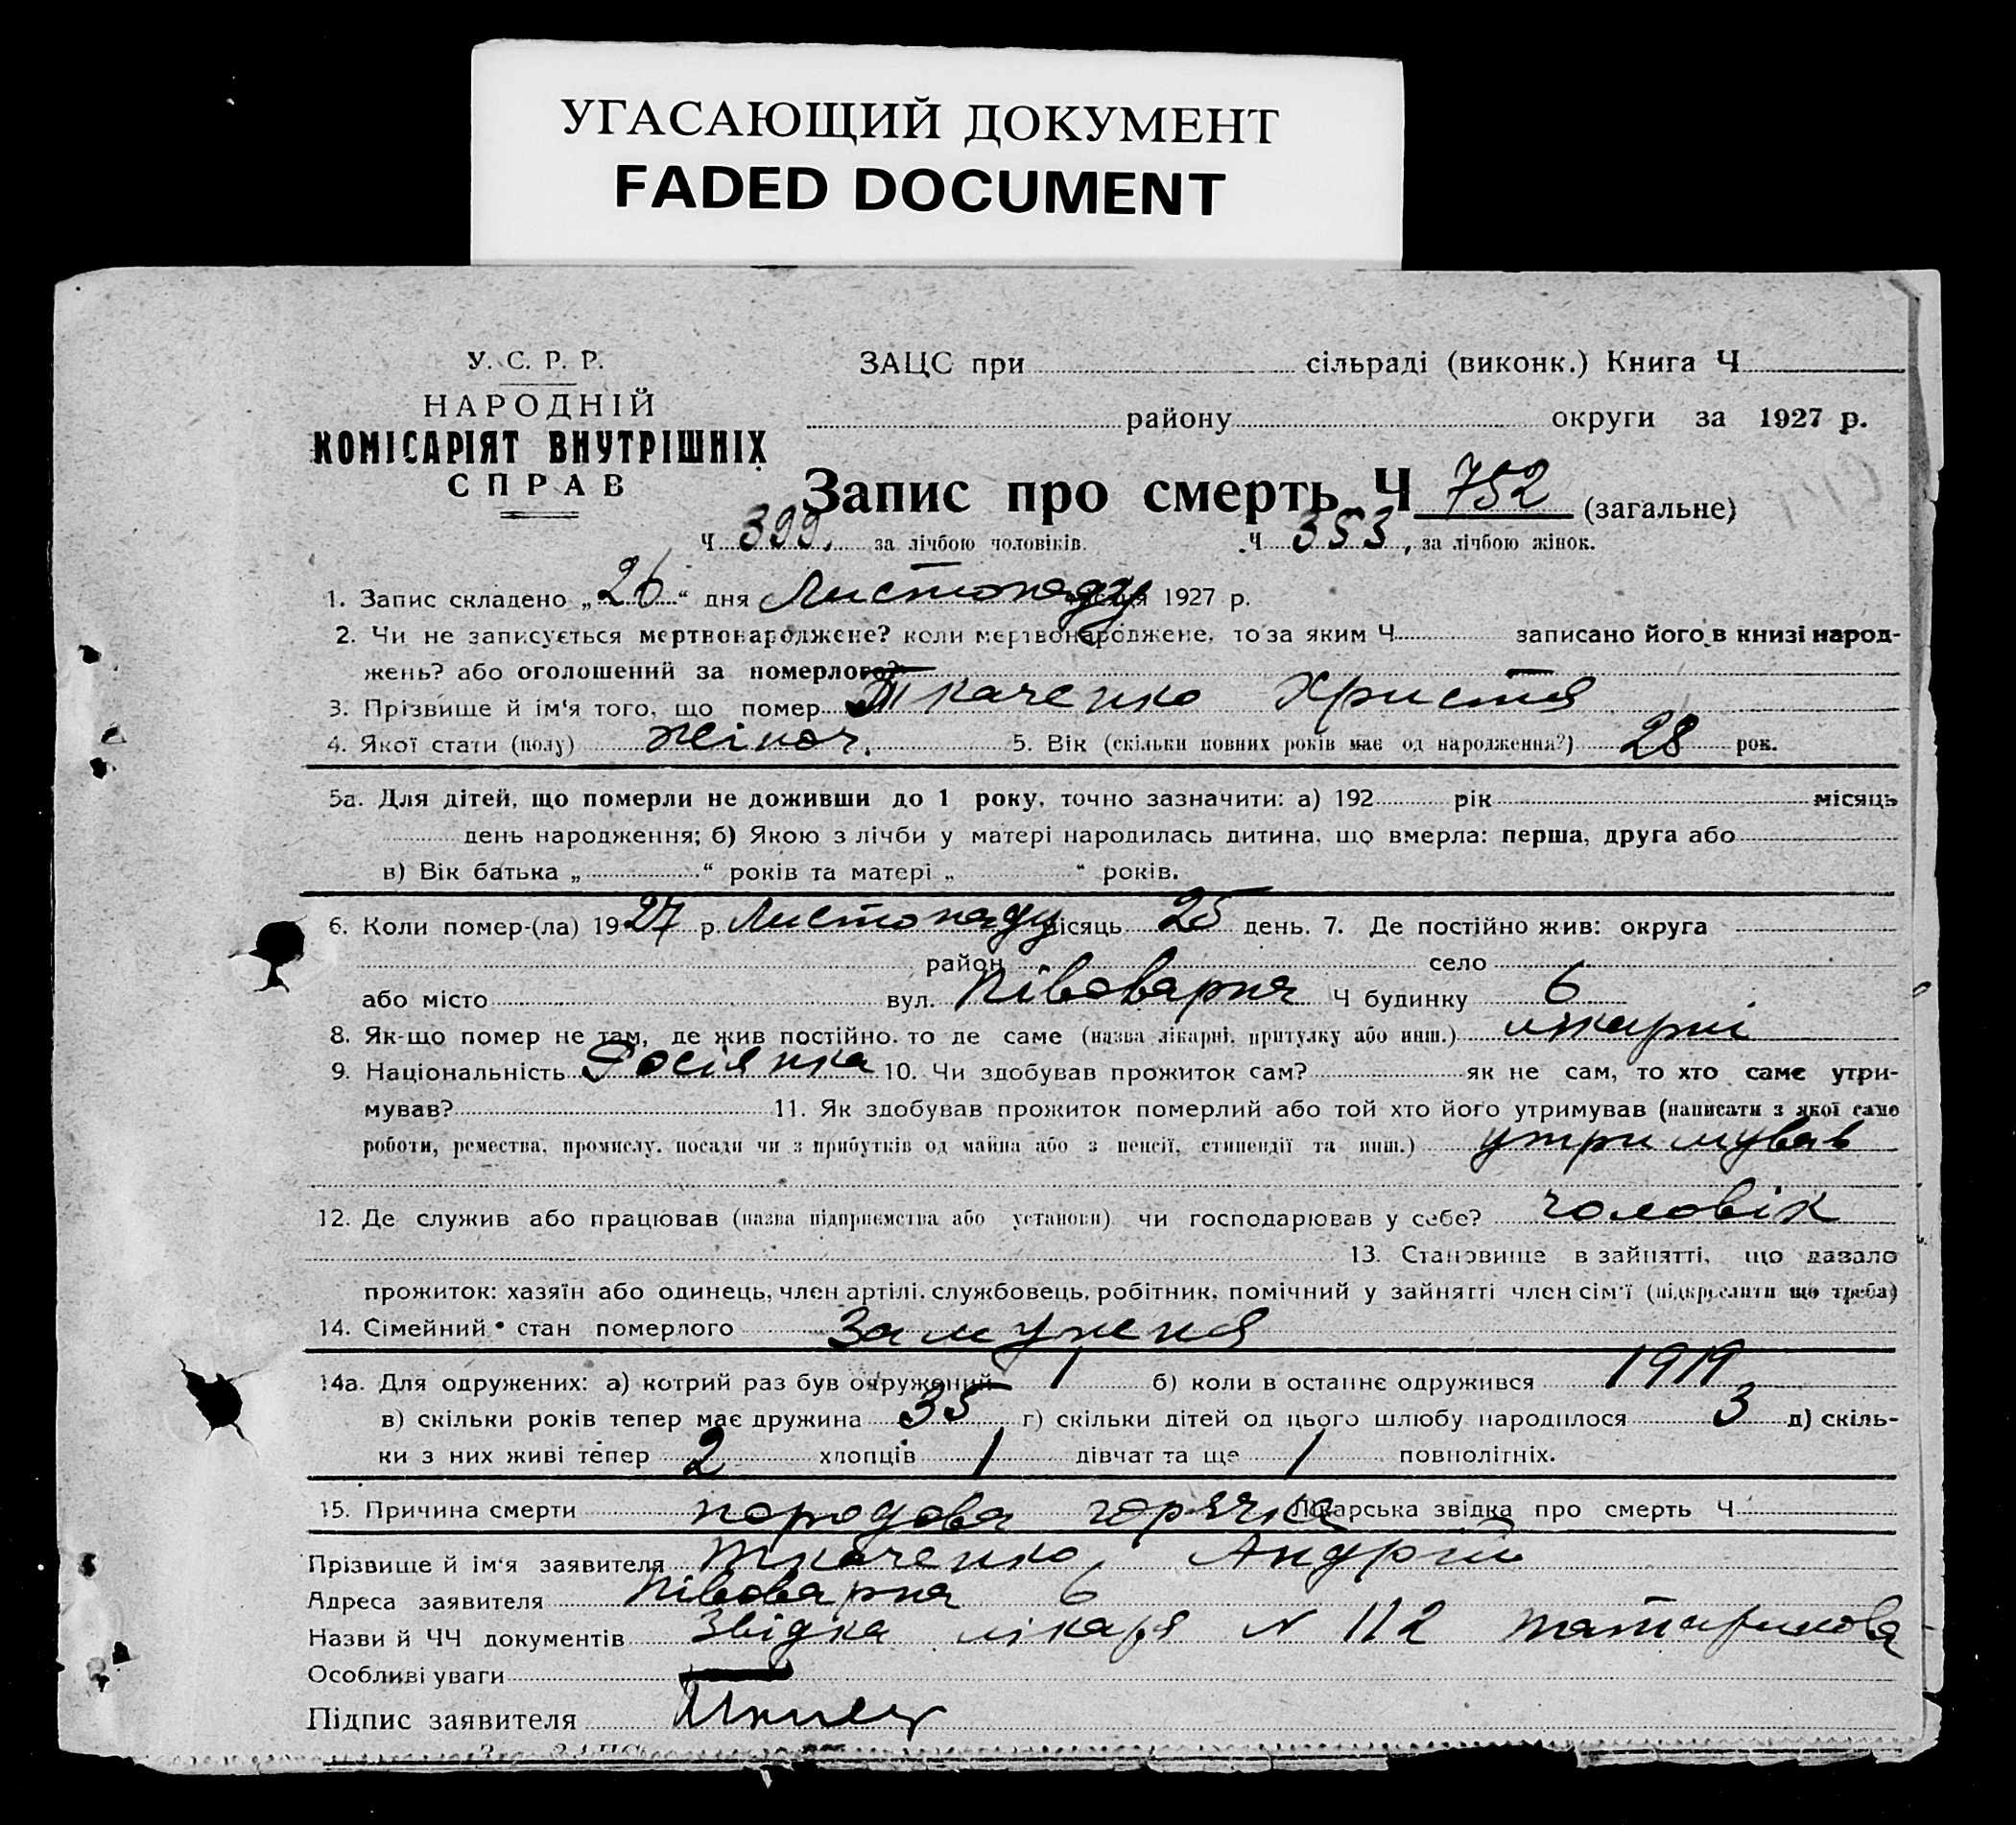 УГАСАЮЩИЙ ДОКУМЕНТ
FADED DOCUMENT
У. С. Р. Р.
НАРОДНІЙ
КОМІСАРІЯТ ВНУТРІШНІХ
СПРАВ
ЗАЦС при сільраді (виконк.) Книга Ч
району округи за 1927 р.
Запис про смерть Ч 752 (загальне)
Ч 399, за лічбою чоловіків. Ч 353, за лічбою жінок.
1. Запис складено „26“ дня Листопаду місяця 1927 р.
2. Чи не записується мертвонароджене? коли мертвонароджене, то за яким Ч записано його в книзі народ-
жень? або оголошений за померлого?
3. Прізвище й ім'я того, що помер Ткаченко Христя
4. Якої стати (полу) жіноч. 5. Вік (скільки повних років має од народження?) 28 рок.
5а. Для дітей, що померли не доживши до 1 року, точно зазначити: а) 192 рік місяць
день народження; б) Якою з лічби у матері народилась дитина, що вмерла: перша, друга або
в) Вік батька „ “ років та матері „ “ років.
6. Коли помер-(ла) 1927 р. Листопаду місяць 25 день. 7. Де постійно жив: округа
район село
або місто вул. Півоварня Ч будинку 6
8. Як-що помер не там, де жив постійно. то де саме (назва лікарні, притулку або инш.) лікарні
9. Національність Росіянка 10. Чи здобував прожиток сам? як не сам, то хто саме утри-
мував? 11. Як здобував прожиток померлий або той хто його утримував (написати з якої саме
роботи, ремества, промислу, посади чи з прибутків од майна або з пенсії, стипендії та инш.) утримував
12. Де служив або працював (назва підприємства або установи) чи господарював у себе? чоловік
13. Становище в зайнятті, що давало
прожиток: хазяїн або одинець, член артілі, службовець, робітник, помічний у зайнятті член сім'ї (підкреслити що треба)
14. Сімейний стан померлого Замужня
14а. Для одружених: а) котрий раз був одружений 1 б) коли в останнє одружився 1919
в) скільки років тепер має дружина 35 г) скільки дітей од цього шлюбу народилося 3 д) скіль-
ки з них живі тепер 2 хлопців 1 дівчат та ще 1 повнолітніх.
15. Причина смерти породова горячка Лікарська звідка про смерть Ч
Прізвище й ім'я заявителя Ткаченко, Андрій
Адреса заявителя Півоварня 6
Назви й ЧЧ документів Звідка лікаря N 112
Особливі уваги
Підпис заявителя